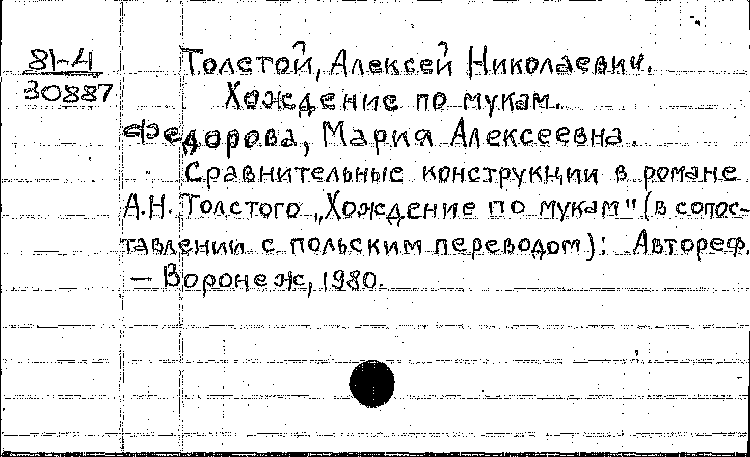 81-4
30887
Толстой, Алексей Николаевич.
Хождение по мукам.
Федорова, Мария Алексеевна.
Сравнительные конструкции в романе
А.Н. Толстого „Хождение по мукам" (в сопос-
тавлении с польским переводом): Автореф.
— Воронеж, 1980.